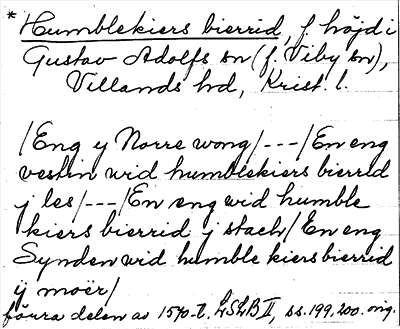 * Humblekiers bierrid, f. höjd i
Gustav Adolfs sn (f. Viby sn),
Villands hd, Krist. l.
/Eng y Norre wong/---/En eng
vesten wid humblekiers bierrid
y les/---/En eng wid humble
kiers bierrid y stach/En eng
Synden wid humble kiers bierrid
y moër/
förra delen av 1570-t. LSLB II, ss. 199, 200. orig.